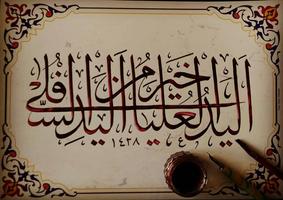 اليد العليا خير من اليد السفلى
١٤٣٨